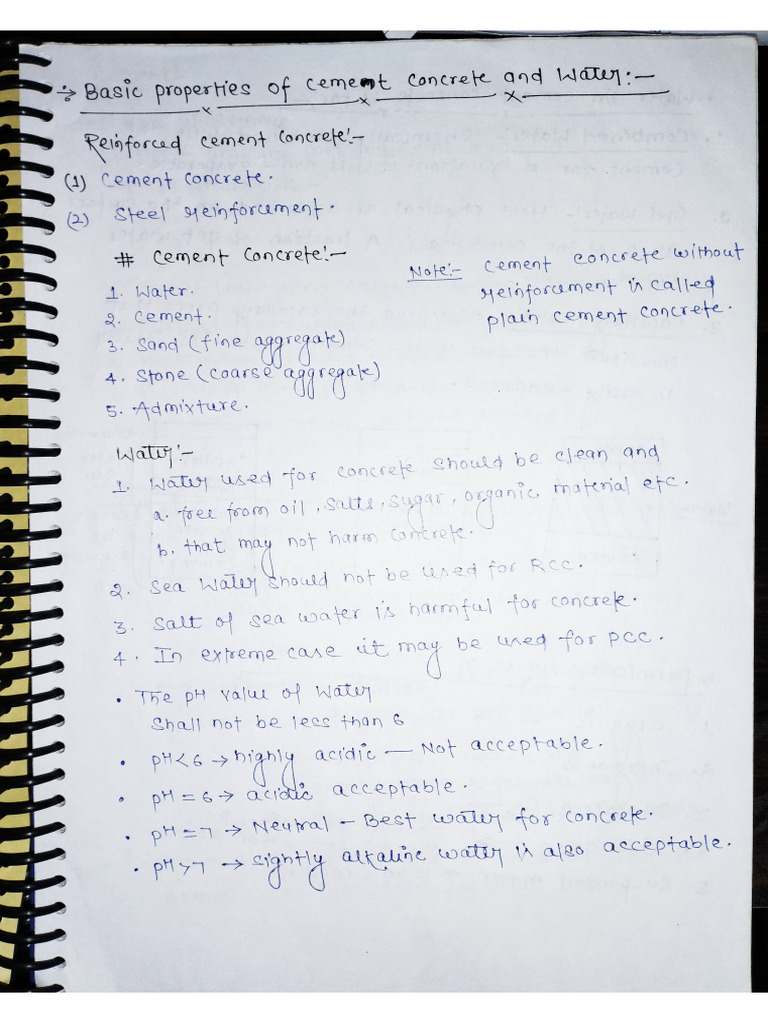 ÷ Basic properties of cement concrete and Water:-
Reinforced cement concrete:-
(1) Cement concrete.
(2) Steel reinforcement.
# Cement Concrete:-
1. Water.
2. Cement.
3. Sand (fine aggregate)
4. Stone (coarse aggregate)
5. Admixture.
Note:- Cement concrete without
reinforcement is called
plain cement concrete.
Water:-
1. Water used for concrete should be clean and
a. free from oil, salts, sugar, organic material etc.
b. that may not harm concrete.
2. Sea Water should not be used for RCC.
3. Salt of sea water is harmful for concrete.
4. In extreme case it may be used for PCC.
• The pH value of Water
Shall not be less than 6
• pH<6 → highly acidic — Not acceptable.
• pH = 6 → acidic acceptable.
• pH = 7 → Neutral – Best water for concrete.
• pH>7 → sightly alkaline water is also acceptable.